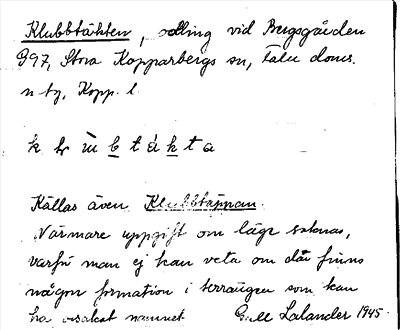 Klubbtäkten, odling vid Bergsgården
997, Stora Kopparbergs sn, Falu doms.
n-by, Kopp. l.
Kallas även Klubbtäppan.
Närmare uppgift om läge saknas,
varför man ej kan veta om där finns
någon formation i terrängen som kan
ha orsakat namnet. Lalander 1945.